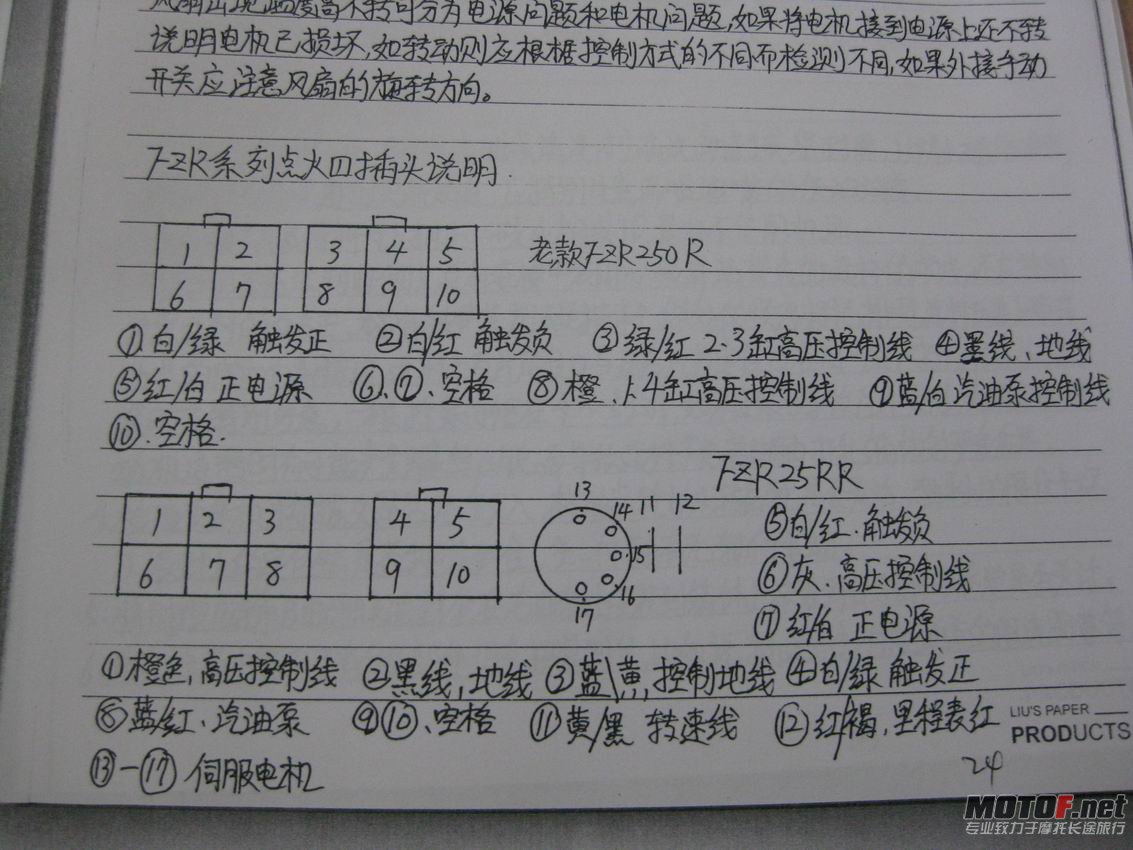 风扇出现温度高不转可分为电源问题和电机问题,如果将电机接到电源上还不转
说明电机已损坏,如转动则应根据控制方式的不同而检测不同,如果外接手动
开关应注意风扇的旋转方向。
FZR系列点火四插头说明.
1 2 3 4 5 老款FZR250R
6 7 8 9 10
①白/绿 触发正 ②白/红 触发负 ③绿/红 2.3缸高压控制线 ④墨线、地线
⑤红/白 正电源 ⑥、⑦、空格 ⑧橙、1.4缸高压控制线 ⑨蓝/白 汽油泵控制线
⑩.空格.
FZR25RR
1 2 3 4 5 13 14 11 12 ⑤白/红.触发负
6 7 8 9 10 15 16 17 ⑥灰、高压控制线
⑦红/白 正电源
①橙色,高压控制线 ②黑线,地线 ③蓝\黄,控制地线 ④白/绿 触发正
⑧蓝/红、汽油泵 ⑨⑩、空格 ⑪黄/黑 转速线 ⑫红/褐,里程表红
⑬-⑰ 伺服电机
LIU'S PAPER
PRODUCTS
24
MOTOF.net
专业致力于摩托长途旅行